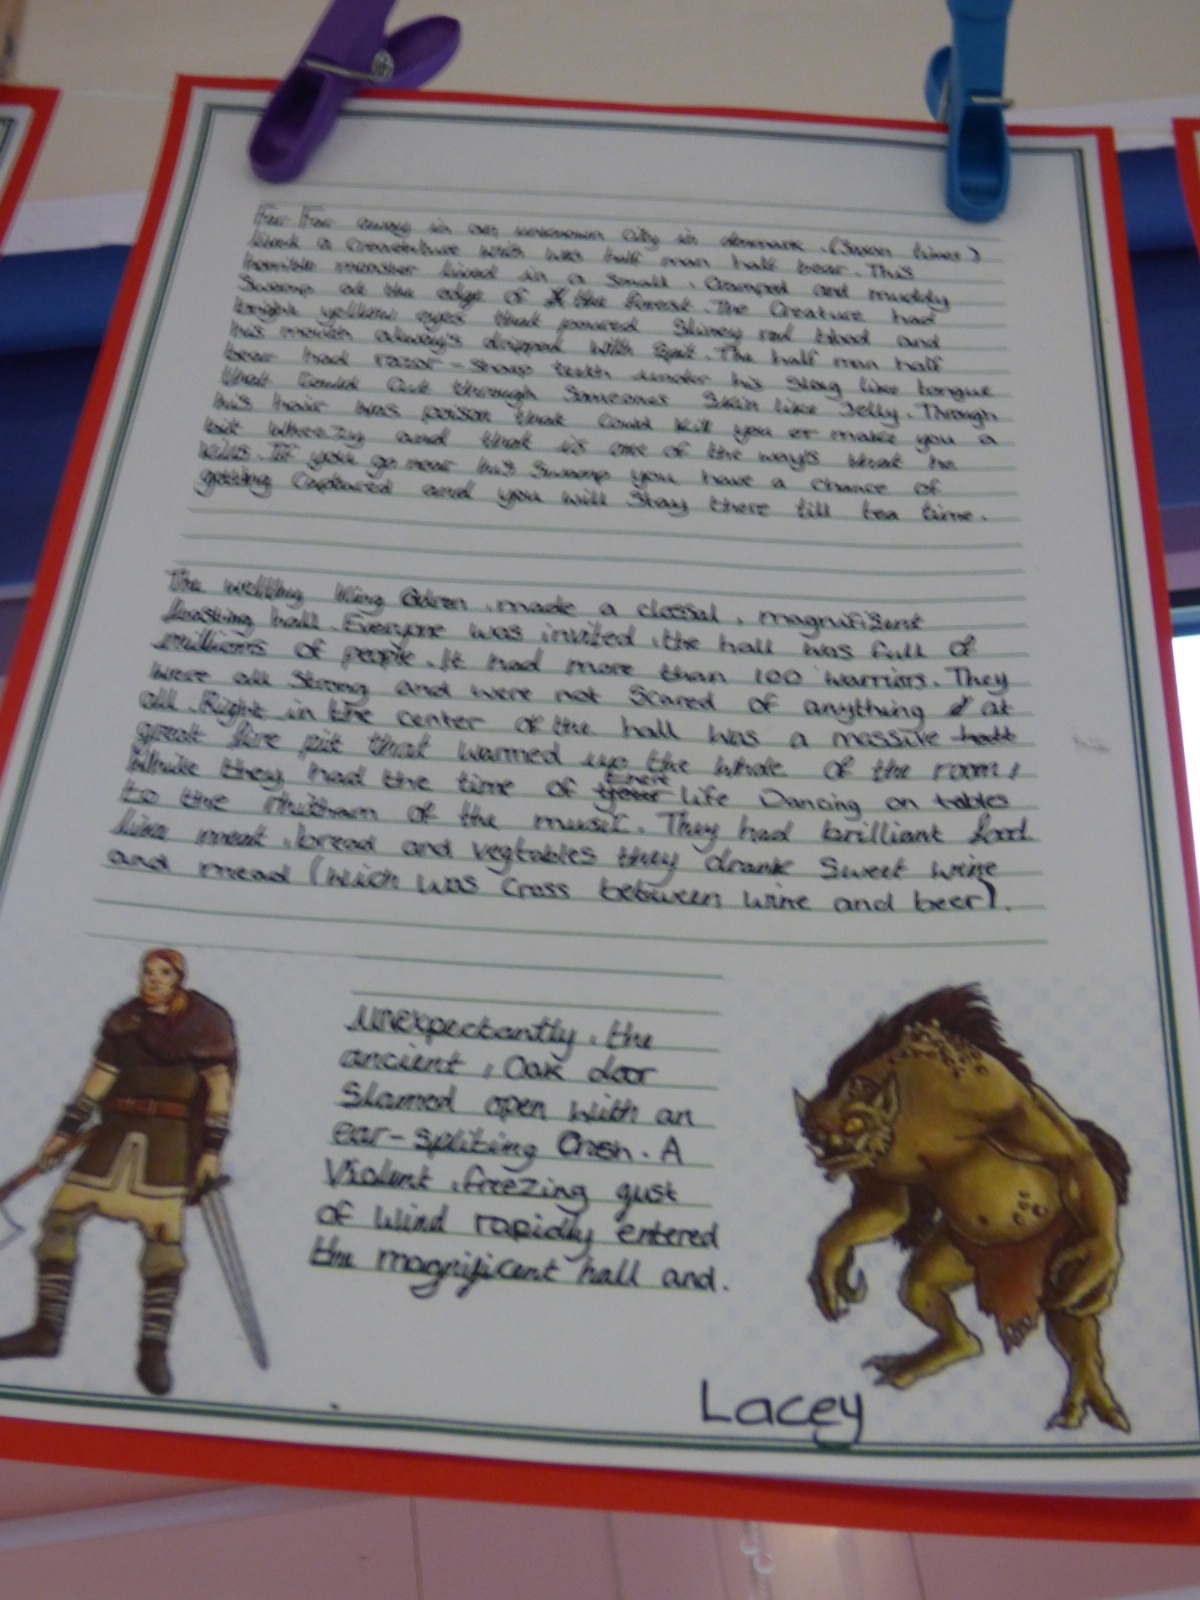 Far Far away in an unknown City in denmark. (Saxon times)
lived a Creanture wich was half man half bear. This
horrible monster lived in a small, Cramped and muddy
Swamp at the edge of the forest. The Creature had
bright yellow eyes that poured Slimey red blood and
his mouth alway's dripped with Spit. The half man half
bear had razor-sharp teeth under his Slug like tongue
that Could Cut through Someones Skin like Jelly. Through
his hair was poison that Could kill you or make you a
bit wheezy and that is one of the way's that he
kills. If you go near his Swamp you have a chance of
getting Captured and you will Stay there till tea time.
The king made a clossal, magnifisent
feasting hall. Everyone was invited, the hall was full of
millions of people. It had more than 100 warriors. They
were all Strong and were not Scared of anything at
all. Right in the center of the hall was a massive
great fire pit that warmed up the whole of the room,
they had the time of there life Dancing on tables
to the of the music. They had brilliant food
like meat, bread and vegtables they drank Sweet wine
and mead (wich was Cross between wine and beer).
unexpectantly, the
ancient, Oak door
Slamed open with an
ear-spliting Crash. A
Violent, freezing gust
of Wind rapidly entered
the magnificent hall and.
Lacey